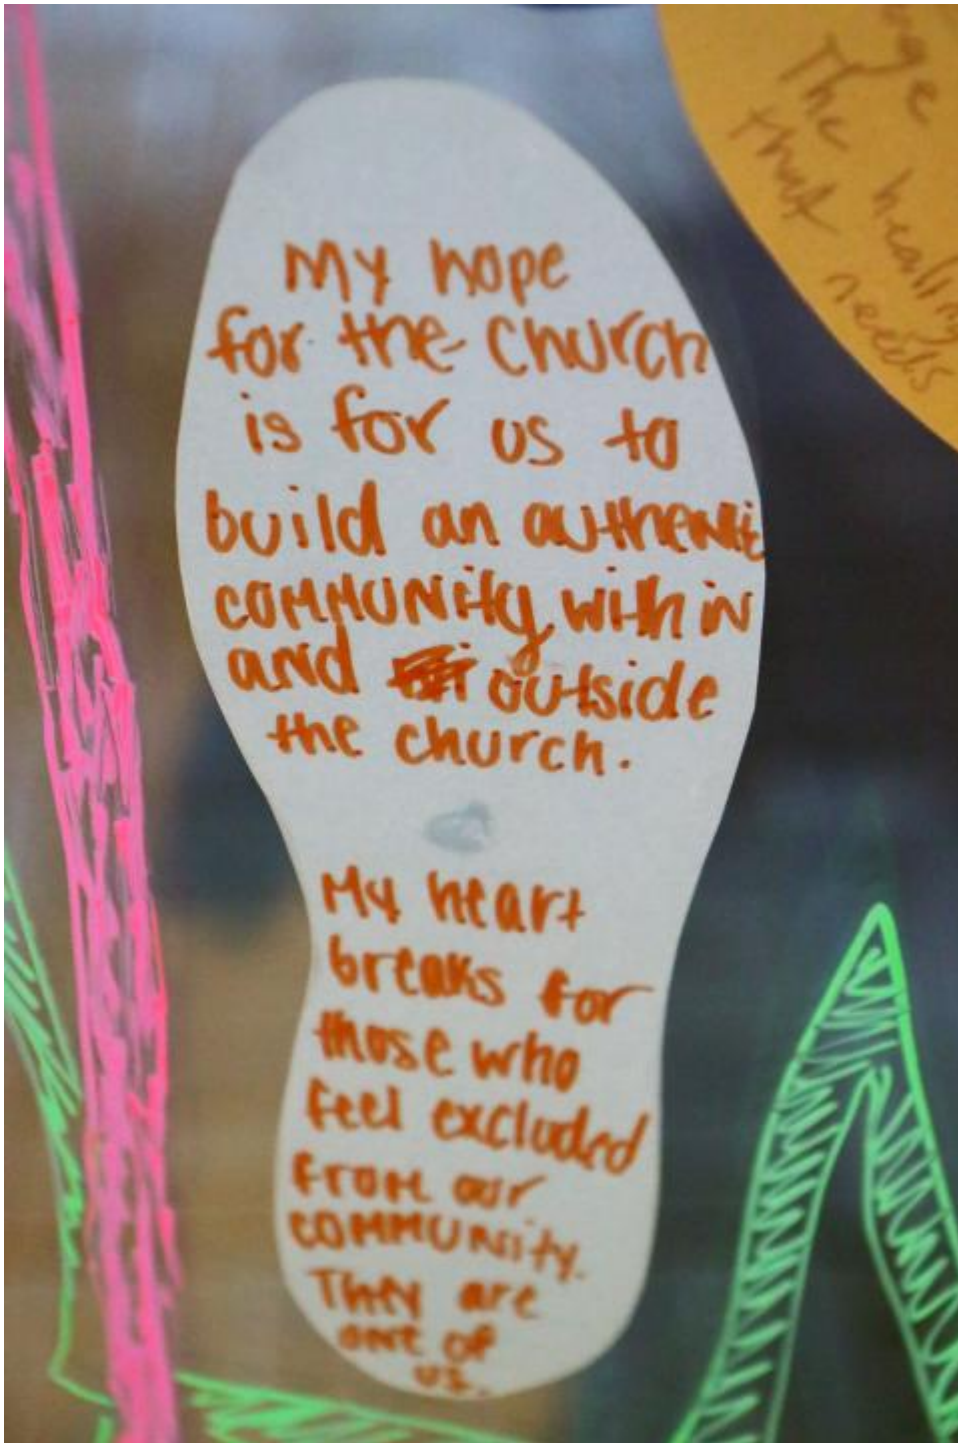 My hope
for the church
is for us to
build an authentic
community within
and outside
the church.
My heart
breaks for
those who
feel excluded
from our
community.
They are
one of
us.
The healing
that needs